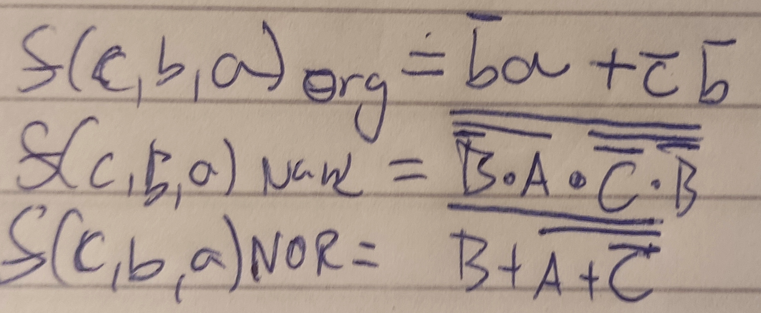 f(c,b,a)org = b̅a + c̅ b̅
f(c,b,a) Nand = \overline{\overline{\overline{B}·A}·\overline{\overline{C}·\overline{B}}}
f(c,b,a)NOR = \overline{B+\overline{A+\overline{C}}}